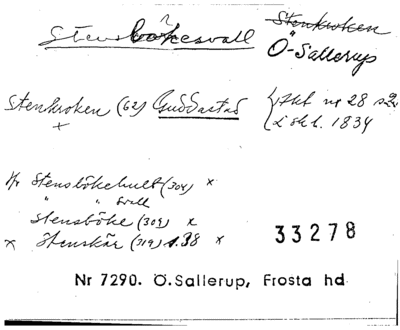 Stenskroken
Stensbökesvall
?
Ö-Sallerup
Stenkroken (62) Guddastad
Akt nr 28
1834
Stensbökehult (304) x
" " vall
Stensböke (309) x
x Stenskär (319) s. 38 x
33278
Nr 7290. Ö.Sallerup, Frosta hd